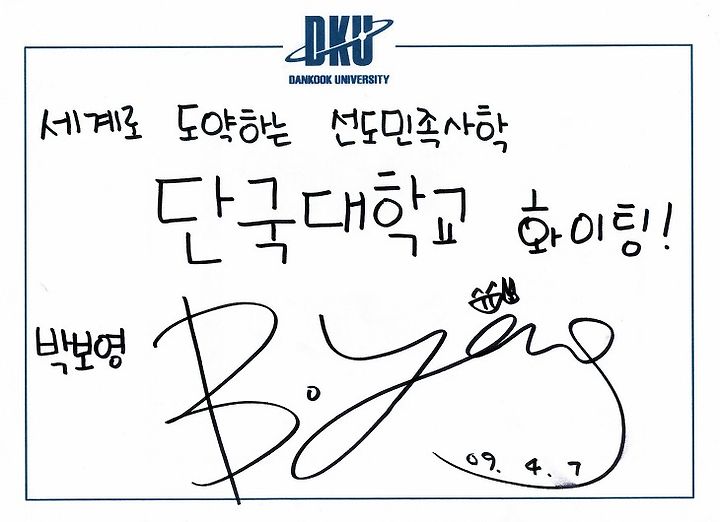 DKU
DANKOOK UNIVERSITY
세계로 도약하는 선도민족사학
단국대학교 화이팅!
박보영
B.Yong
09. 4. 7